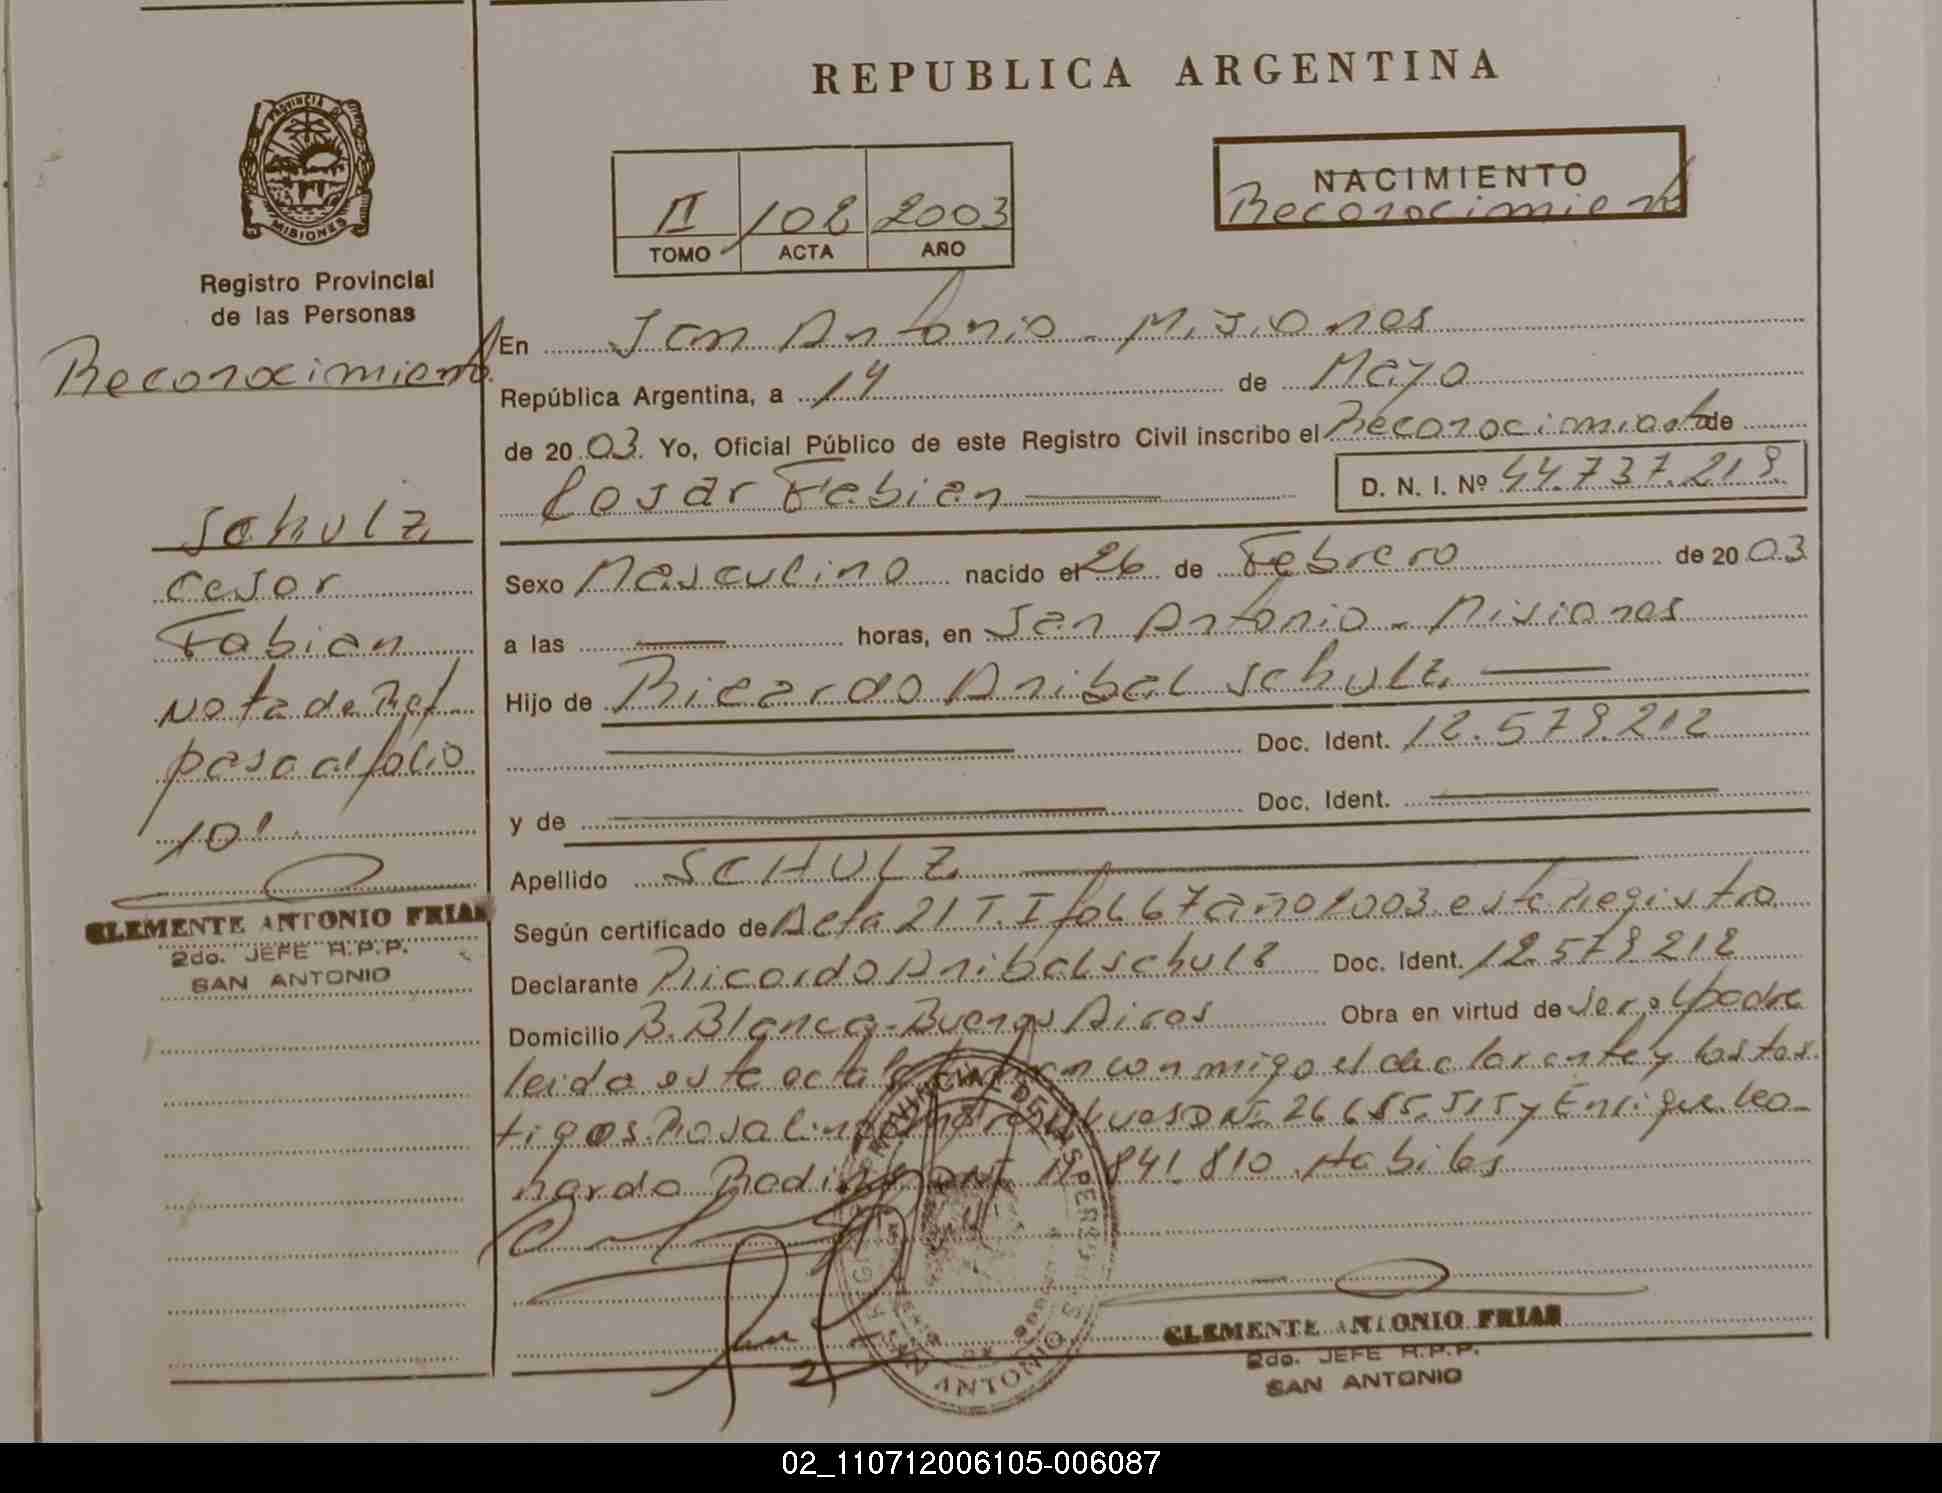 REPUBLICA ARGENTINA
PROVINCIA DE
MISIONES
Registro Provincial
de las Personas
Reconocimiento
Schulz
Cesar
Fabian
Nota de Ref
pasa al folio
101
CLEMENTE ANTONIO FRIAS
2do. JEFE R.P.P.
SAN ANTONIO
II 102 2003
TOMO ACTA AÑO
NACIMIENTO
Reconocimiento
En San Antonio - Misiones
República Argentina, a 19 de Mayo
de 20 03. Yo, Oficial Público de este Registro Civil inscribo el Reconocimiento de
Cesar Fabian D. N. I. Nº 44.737.219
Sexo Masculino nacido el 26 de Febrero de 20 03
a las horas, en San Antonio - Misiones
Hijo de Ricardo Anibal Schulz
Doc. Ident. 12.579.212
y de Doc. Ident.
Apellido SCHULZ
Según certificado de Acta 21 T. I fol 67 año 2003 este Registro
Declarante Ricardo Anibal Schulz Doc. Ident. 12.579.212
Domicilio B. Blanca - Buenos Aires Obra en virtud de ser el padre
leida este acta conmigo el declarante y los tes
tigos Rosalino DNI. 26.655.515 y Enrique Leo-
nardo DNI. 841.810. Habiles
SAN ANTONIO
CLEMENTE ANTONIO FRIAS
2do. JEFE R.P.P.
SAN ANTONIO
02_110712006105-006087